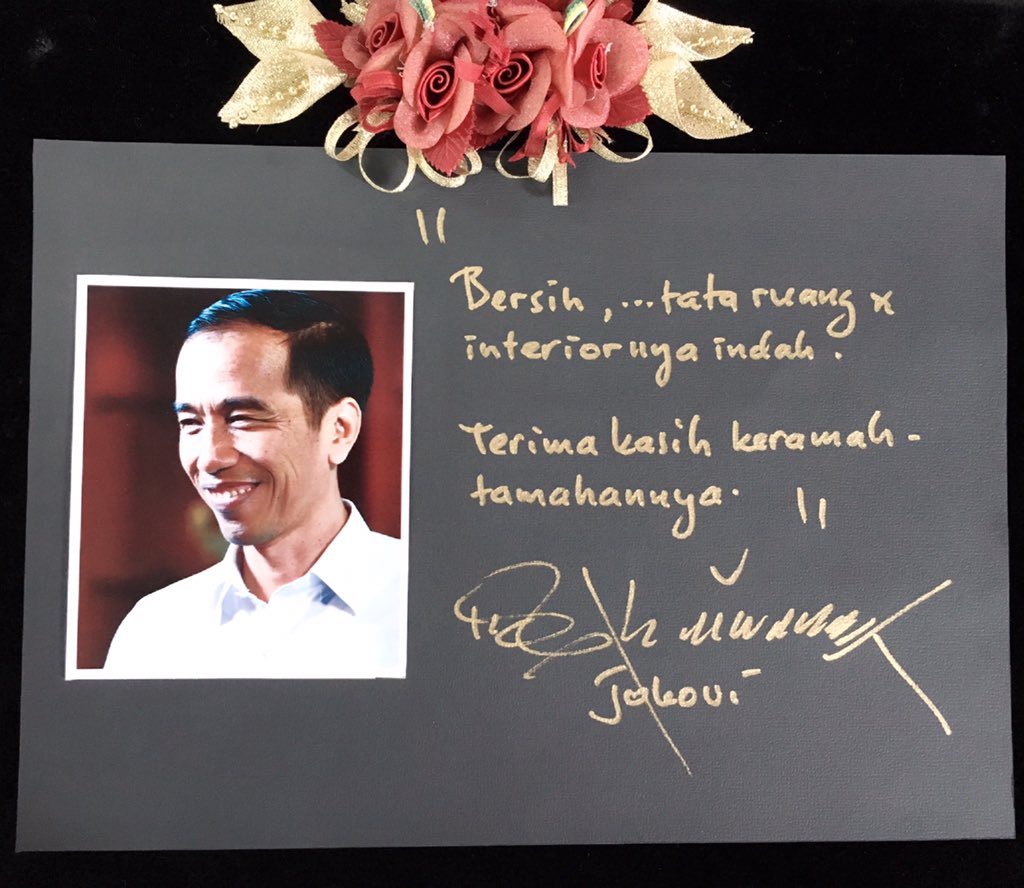 "
Bersih, ...tata ruang &
interiornya indah.
Terima kasih keramah-
tamahannya. "
Jokowi